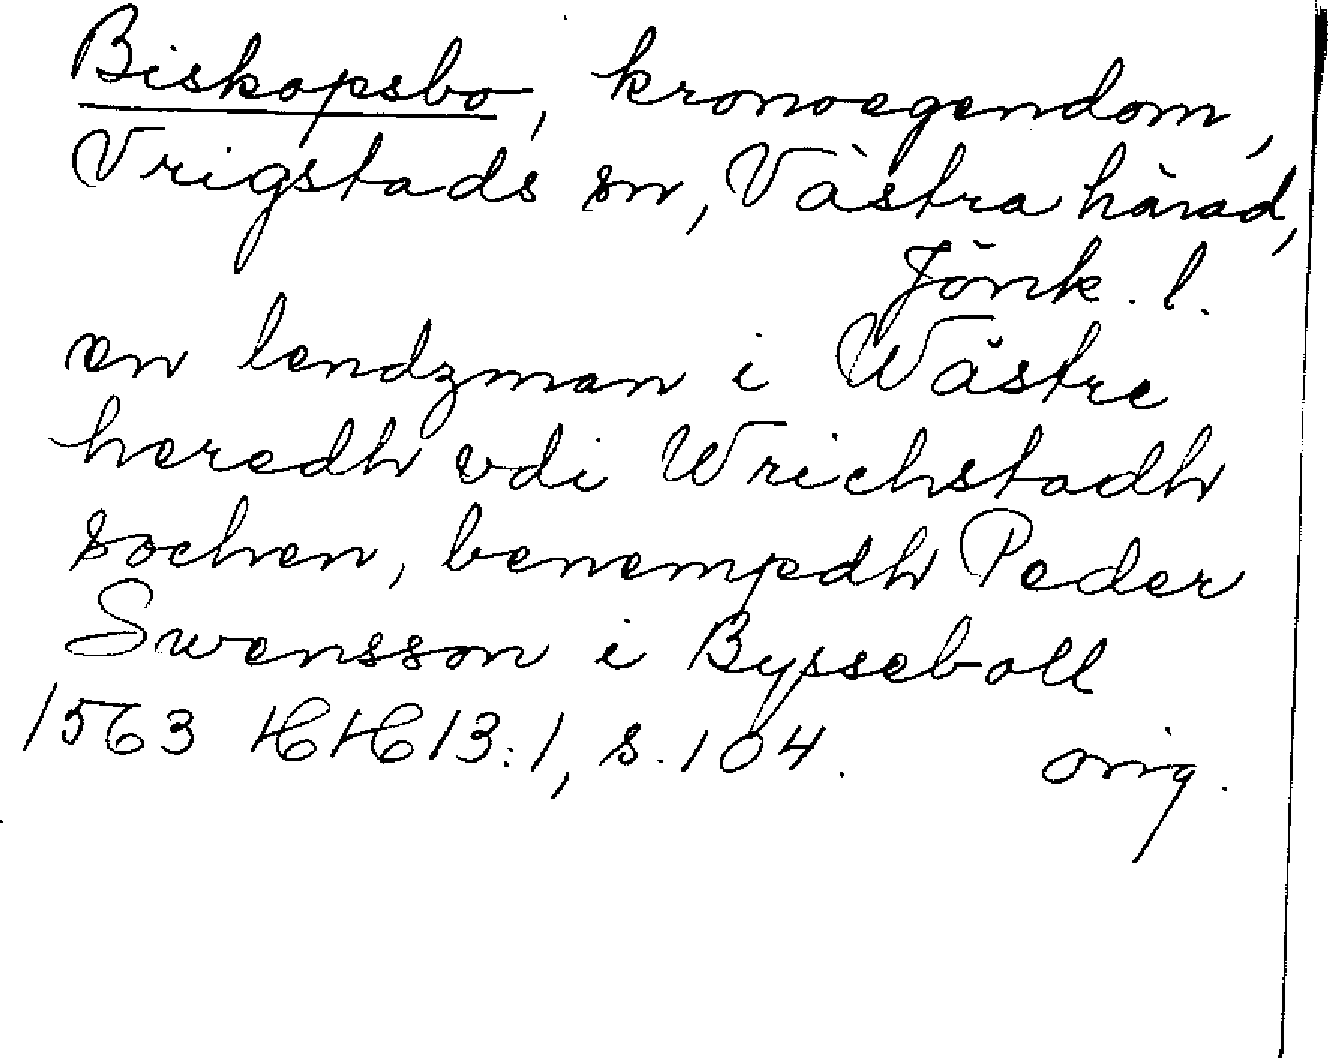 Biskopsbo, kronoegendom,
Vrigstads sn, Västra härad,
Jönk. l.
en lendzman i Wästre
heredh vdi Wrichstadh
sochen, benempdh Peder
Swensson i Bysseboll
1563 HH 13:1, s. 104. orig.